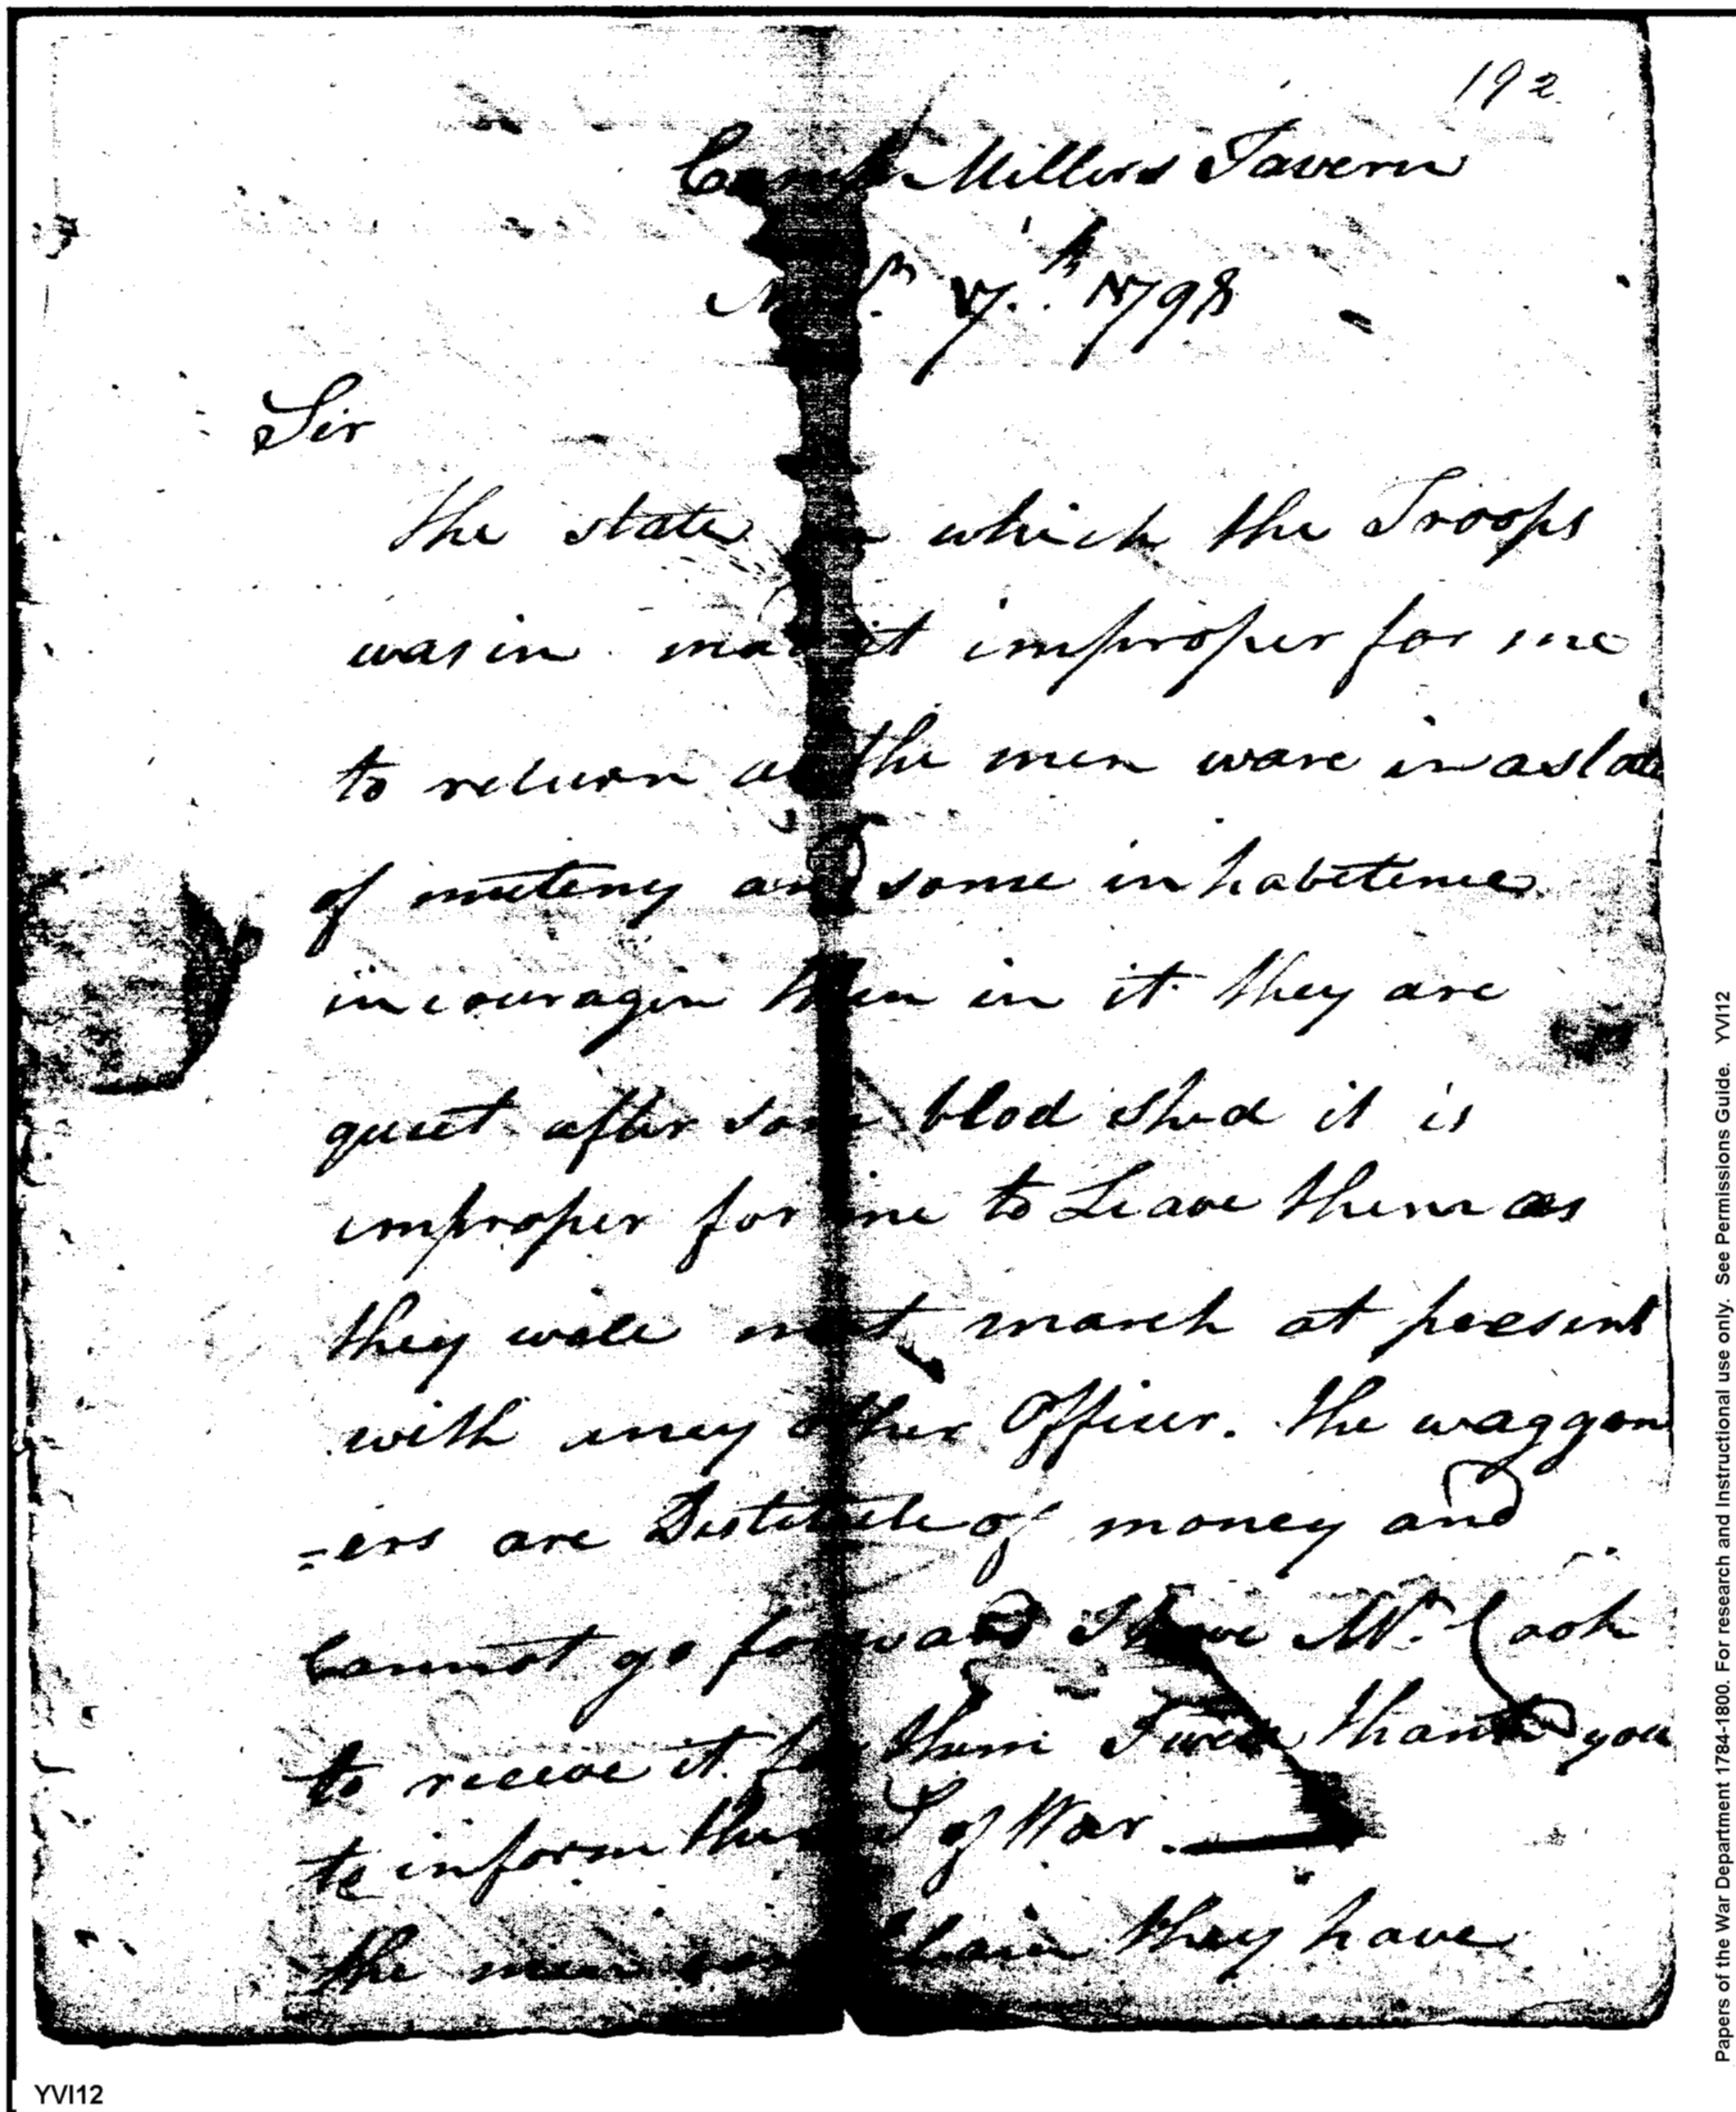 192
Camp Millers Tavern
17th 1798
Sir
the state in which the Troops
was in mad it improper for me
to return as the men ware in a state
of muteny and some inhabetence
incouragin them in it they are
quiet after som blod shed it is
improper for me to Leave them as
they wile not march at present
with aney other Officer. the waggon
=ers are Distitute of money and
Cannot go forward I have Mr. Cook
to receve it for them I wile thank you
to inform the S of War
the men complain they have
Papers of the War Department 1784-1800. For research and Instructional use only. See Permissions Guide. YVI12
YVI12